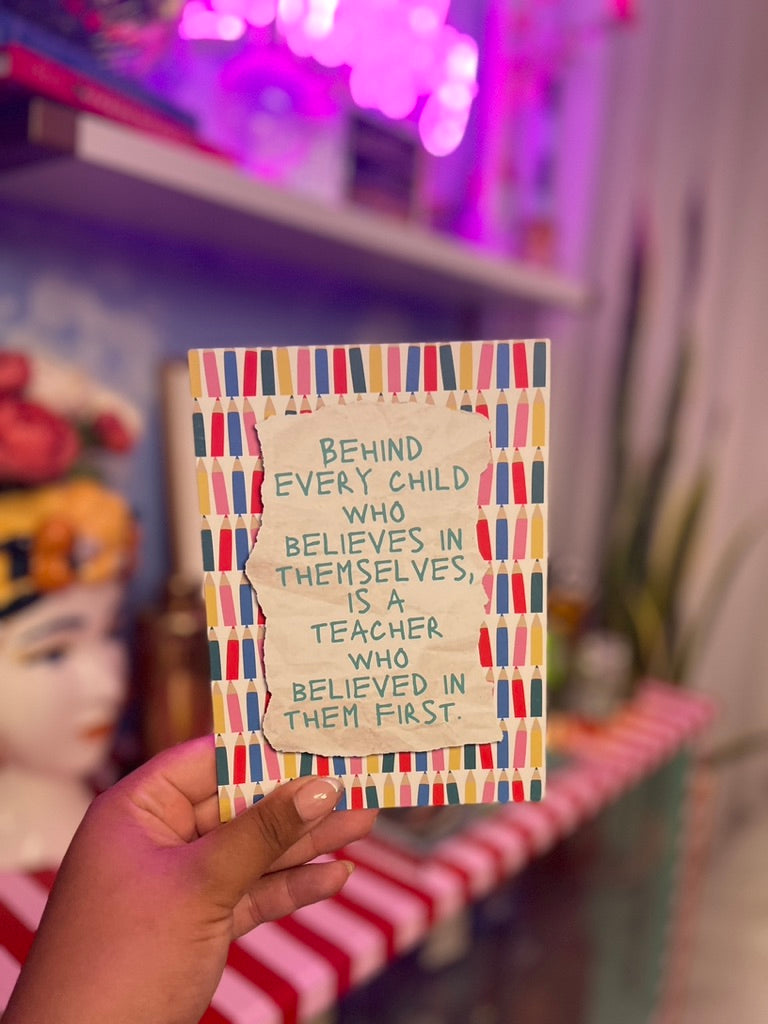 BEHIND
EVERY CHILD
WHO
BELIEVES IN
THEMSELVES,
IS A
TEACHER
WHO
BELIEVED IN
THEM FIRST.